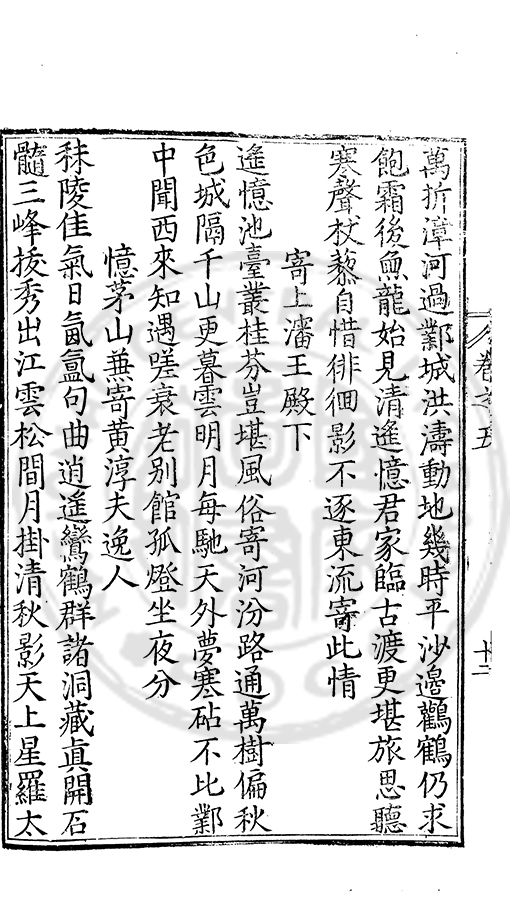 卷之五
十二
萬折漳河過鄴城洪濤動地幾時平沙邊鸛鶴仍求
飽霜後魚龍始見清遙憶君家臨古渡更堪旅思聽
寒聲杖藜自惜徘徊影不逐東流寄此情
寄上瀋王殿下
遙憶池臺叢桂芬豈堪風俗寄河汾路通萬樹偏秋
色城隔千山更暮雲明月每馳天外夢寒砧不比鄴
中聞西來知遇嗟衰老別館孤燈坐夜分
憶茅山兼寄黃淳夫逸人
秣陵佳氣日氤氳句曲逍遙鸞鶴群諸洞藏眞開石
髓三峰拔秀出江雲松間月掛清秋影天上星羅太